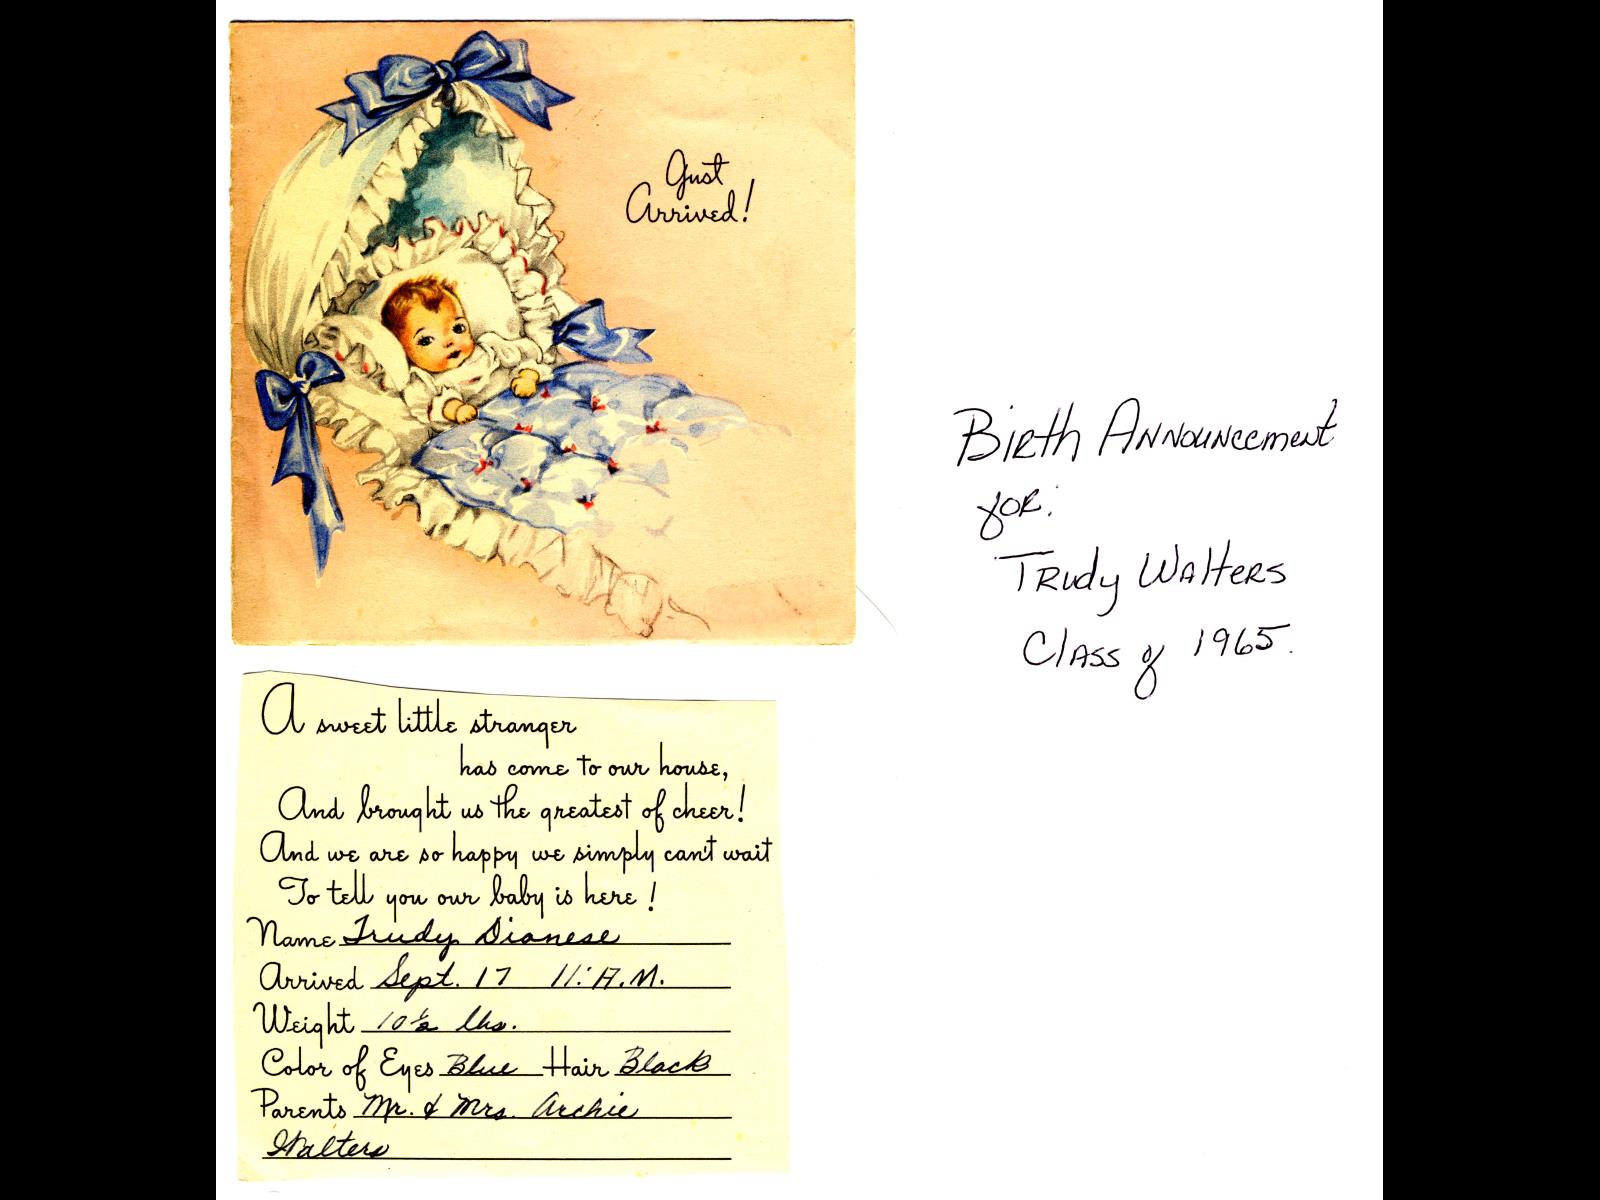 Just
Arrived!
Birth Announcement
for:
Trudy Walters
Class of 1965.
A sweet little stranger
has come to our house,
And brought us the greatest of cheer!
And we are so happy we simply can't wait
To tell you our baby is here!
Name Trudy Dianese
Arrived Sept. 17 11: A.M.
Weight 10½ lbs.
Color of Eyes Blue Hair Black
Parents Mr. & Mrs. Archie
Walters